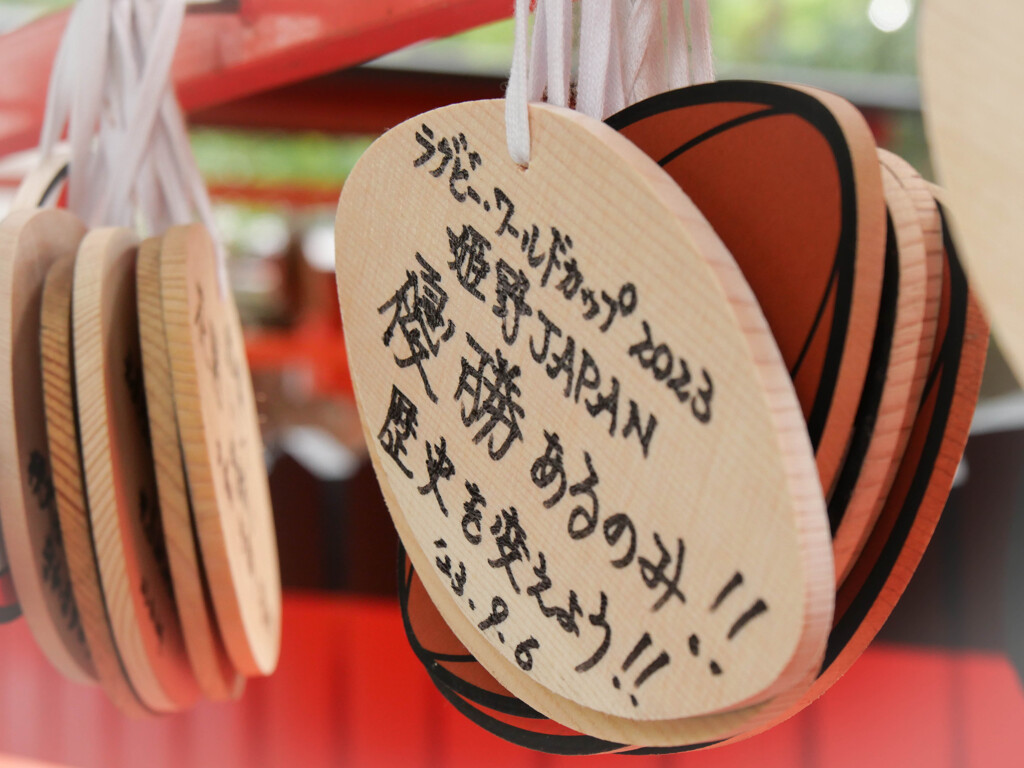 ラグビーワールドカップ2023
姫野JAPAN
優勝あるのみ!!
歴史を変えよう!!
'23.9.6